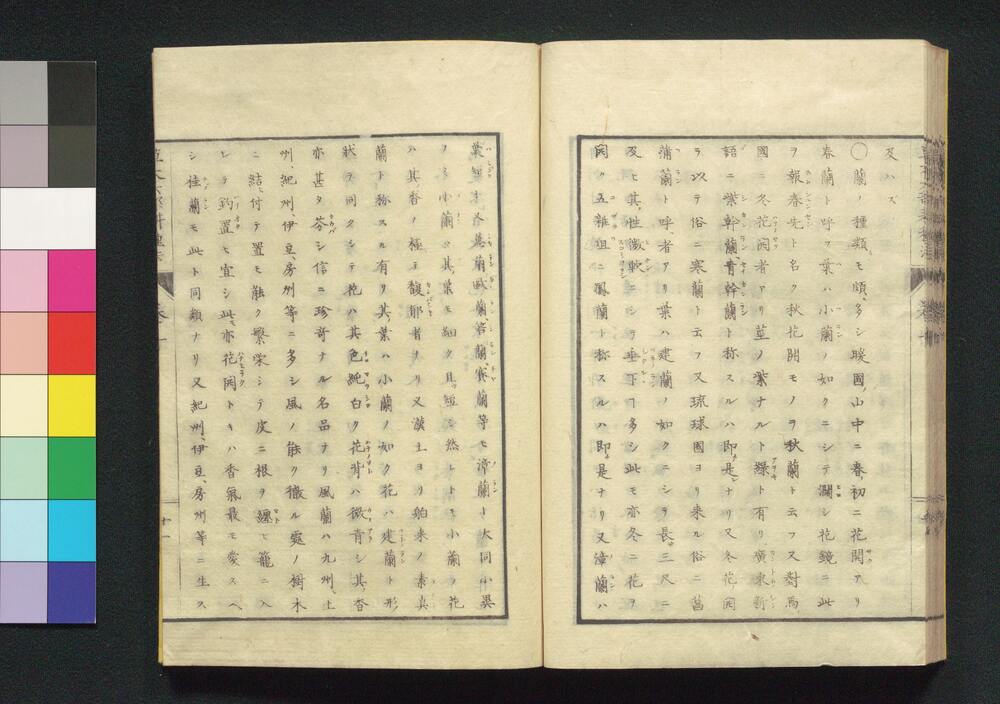 及ハス
〇蘭ノ種類モ頗多シ暖國ノ山中ニ春ノ初ニ花開アリ
春蘭ト呼フ葉ハ小蘭ノ如クニシテ濶シ花鏡ニ此
ヲ報春先ト名ク秋花開モノヲ秋蘭ト云フ又對馬
國ニ冬花開者アリ莖ノ紫ナルト綠ト有リ廣東新
語ニ紫幹蘭青幹蘭ト称スルハ即是ナリ又冬花開
ヲ以テ俗ニ寒蘭ト云フ又琉球國ヨリ来ル俗ニ菖
蒲蘭ト呼者アリ葉ハ建蘭ノ如クニシテ長三尺ニ
及ヒ其性微軟ニシテ垂下ヿ多シ此モ亦冬ニ花ヲ
開ク五雜俎ニ鳳蘭ト称スルハ即是ナリ又漳蘭ハ
葉短 蘭等モ漳蘭ト大同小異
ノミ小蘭ハ其葉モ細ク且短シ然レトモ小蘭ノ花
ハ其香ノ極テ馥郁者ナリ又漢土ヨリ舶来ノ素真
蘭ト称スル有リ其葉ハ小蘭ノ如ク花ハ建蘭ト形
狀ヲ同クシテ花ハ其色純白ク花背ハ微青シ其香
亦甚タ芬シ信ニ珍奇ナル名品ナリ風蘭ハ九州土
州、紀州、伊豆、房州等ニ多シ風ノ能ク徹ル處ノ樹木
ニ結付テ置モ能ク繁栄シテ皮ニ根ヲ纏ヒ籠ニ入
レテ釣置モ宜シ此モ亦花開トキハ香氣最モ愛スヘ
シ桂蘭モ此ト同類ナリ又紀州、伊豆、房州等ニ生ス
十一